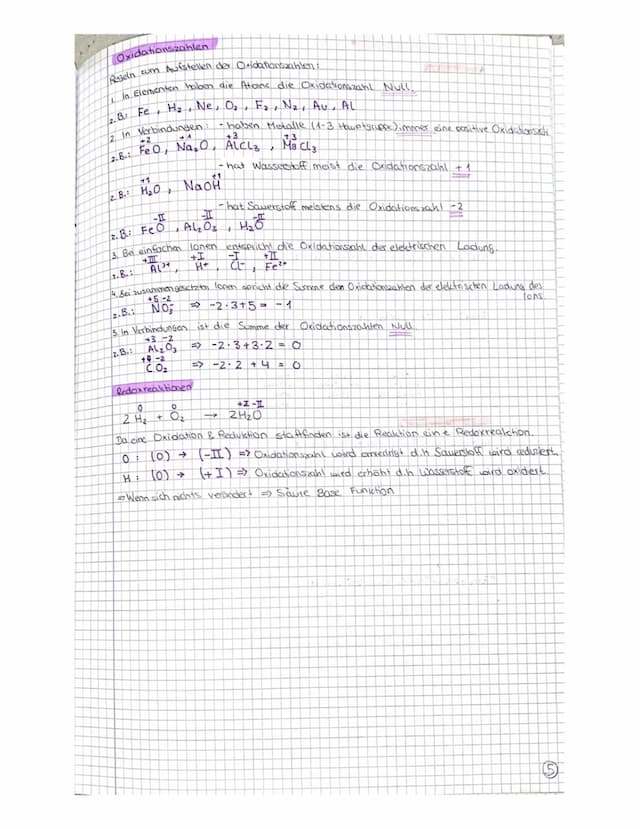 Oxidationszahlen
Regeln zum Aufstellen der Oxidationszahlen:
1. In Elementen haben die Atome die Oxidationszahl Null.
z.B.: Fe, H₂, Ne, O₂, F₂, N₂, Au, Al
2. In Verbindungen: - haben Metalle (1-3 Hauptgruppe) immer eine positive
+2 +1 +3 +3
z.B.: FeO, Na₂O, AlCl₃, Cl₃
- hat Wasserstoff meist die Oxidationszahl +1
+1 +1
z.B.: H₂O, NaOH
- hat Sauerstoff meistens die Oxidationszahl -2
-II -II -II
z.B.: FeO, Al₂O₃, H₂O
3. Bei einfachen Ionen entspricht die Oxidationszahl der elektrischen Ladung.
+III +I -I +II
z.B.: Al³⁺, H⁺, Cl⁻, Fe²⁺
4. Bei zusammengesetzten Ionen spricht die Summe den Oxidationszahlen der elektrischen Ladung des
Ions.
+5 -2
z.B.: NO₃⁻ ⇒ -2·3+5 = -1
5. In Verbindungen ist die Summe der Oxidationszahlen Null
+3 -2
z.B.: Al₂O₃ ⇒ -2·3+3·2 = 0
-2
CO₂ ⇒ -2·2 +4 = 0
Redoxreaktionen
0 0 +I -II
2H₂ + O₂ → 2H₂O
Da eine Oxidation & Reduktion stattfinden ist die Reaktion eine Redoxreaktion.
O: (0) → (-II) ⇒ Oxidationszahl wird d.h Sauerstoff wird reduziert.
H: (0) → (+I) ⇒ Oxidationszahl wird erhöht d.h Wasserstoff wird oxidert.
⇒ Wenn sich nichts verändert ⇒ Säure Base Funktion
5